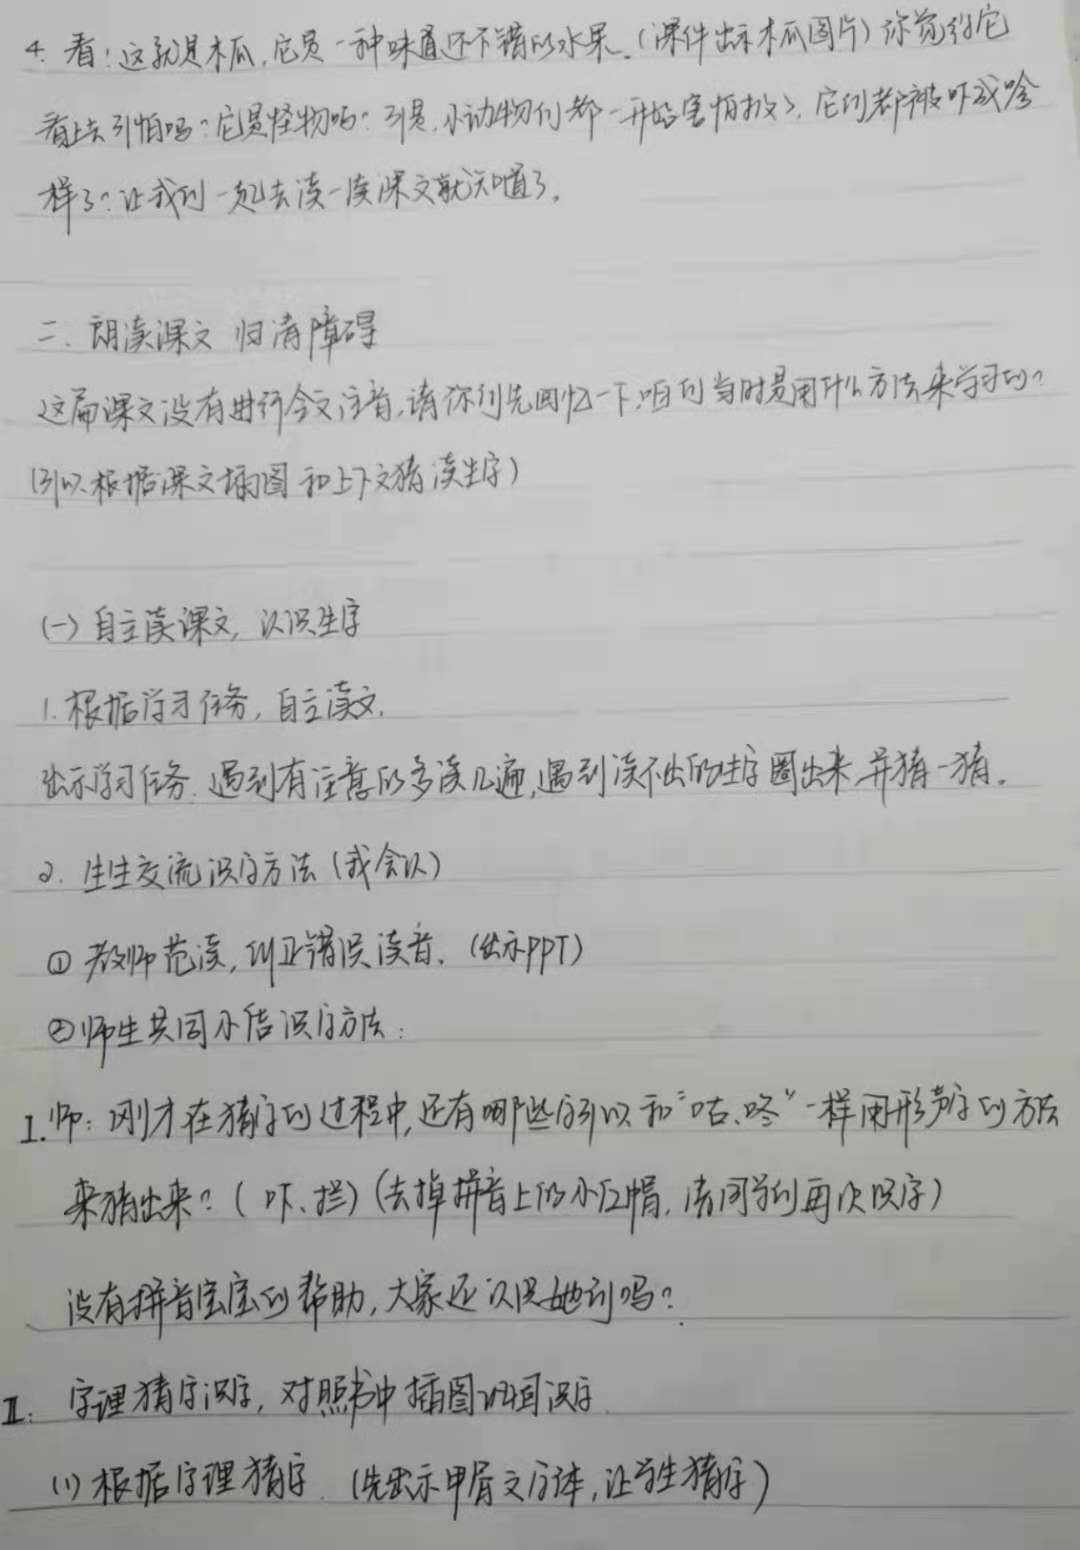 4. 看！这就是木瓜，它是一种味道还不错的水果。（课件出示木瓜图片）你觉得它
看上去可怕吗？它是怪物吗？可是，小动物们都一开始害怕极了，它们都被吓成啥
样了？让我们一起去读一读课文就知道了。
二. 朗读课文 扫清障碍
这篇课文没有进行全文注音，请你们先回忆一下，咱们当时是用什么方法来学习的？
（可以根据课文插图和上下文猜读生字）
(一) 自主读课文，认识生字
1. 根据学习任务，自主读文.
出示学习任务：遇到有注意的多读几遍，遇到读不出的生字圈出来，并猜一猜。
2. 生生交流识字方法（我会认）
① 教师范读，纠正错误读音.（出示PPT）
②师生共同小结识字方法：
I. 师：刚才在猜字的过程中，还有哪些字可以和“咕、咚”一样用形声字的方法
来猜出来？（吓、拦）（去掉拼音上的小红帽，请同学们再次识字）
没有拼音宝宝的帮助，大家还认识她们吗？
II. 字理猜字识字，对照书中插图巩固识字
(1) 根据字理猜字.（先出示甲骨文字体，让学生猜字）